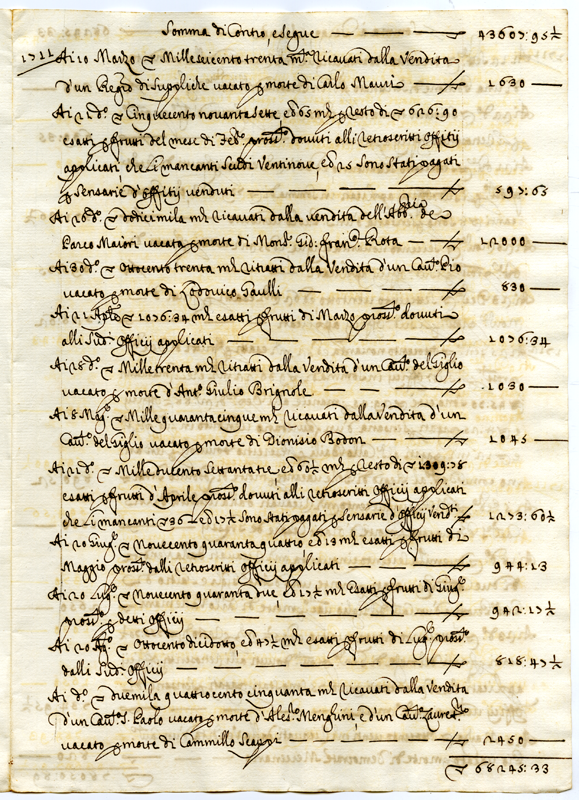 Somma di Contro, e segue — — — 43607:95½
1711 Ai 10 Marzo Mille seicento trenta mta ricavati dalla Vendita
d'un Regro di Suppliche vacato p morte di Carlo Mauri — 1630 —
Ai 21 do. Cinquecento novanta sette ed 65 mta p resto di 626:90
esatti p frutti del mese di Febo. pross.o dovuti alli retroscritti Offitij
applicati che li mancanti Scudi Ventinove, ed 25 sono stati pagati
p Senserie d'offitij venduti — — — 597:65
Ai 26 do. dodicimila mta ricavati dalla vendita dell' de
Parco Maiori vacata p morte di Monsr. Gio: Franco. Rota — 12000 —
Ai 30 do. Ottocento trenta mta ritratti dalla Vendita d'un Cavto. Pio
vacato p morte di Lodovico Gaulli — — — 830 —
Ai 21 Aple 1076:34 mta esatti p frutti di Marzo pross.o dovuti
alli Sudi. Offitij applicati — — — 1076:34
Ai 28 do. Mille trenta mta ritratti dalla Vendita d'un Cavto. del Giglio
vacato p morte d'Anto. Giulio Brignole — — — 1030 —
Ai 8 Mago. Mille quaranta cinque mta ricavati dalla Vendita d'un
Cavto. del Giglio vacato p morte di Dionisio Bodon — — 1045 —
Ai 21 do. Mille ducento settantatre ed 60½ mta p resto di 1309:78
esatti p frutti d'Aprile pross.o dovuti alli retroscritti Offitij applicati
che li mancanti 36 — ed 17½ sono stati pagati p Senserie d'offitij Vendti. — 1273:60½
Ai 20 Giugo. Novecento quaranta quattro, ed 13 mta esatti p frutti di
Maggio pross.o dalli retroscritti Offitij applicati — — 944:13
Ai 20 Lugo. Novecento quaranta due, ed 17½ mta Esatti p frutti di Giugo.
pross.o p detti Offitij — — — 942:17½
Ai 20 Ago. Ottocento diciotto ed 47½ mta esatti p frutti di Lugo. pross.o
dalli Sudi. Offitij — — — 818:47½
Ai do. duemila quattrocento cinquanta mta ricavati dalla Vendita
d'un Cavto. S. Paolo vacato p morte d'Alesso. Menghini, e d'un Cavto. Lauretno.
vacato p morte di Cammillo Scappi — — — 2450 —
68245:33